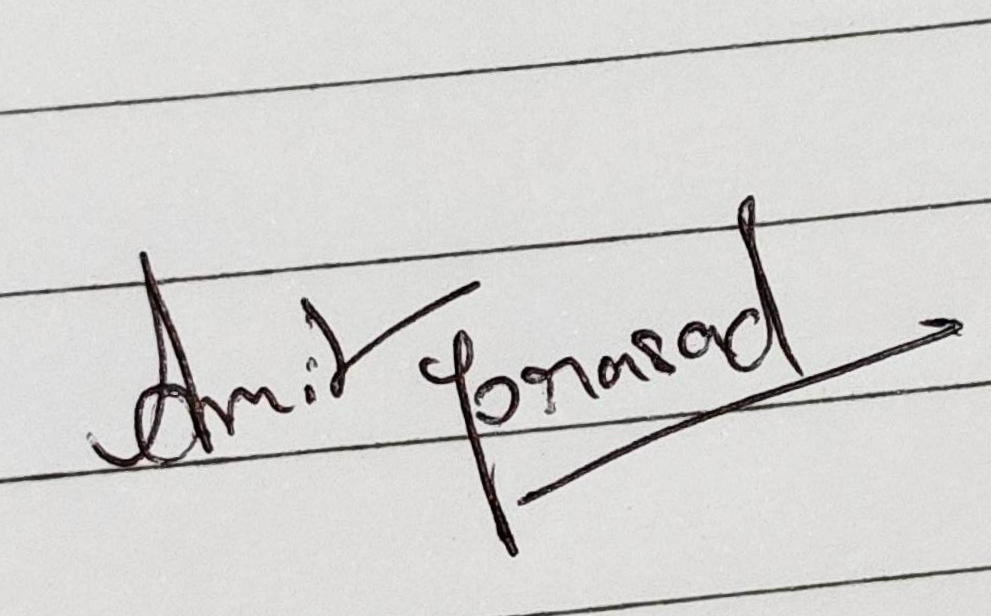 Amit Prasad